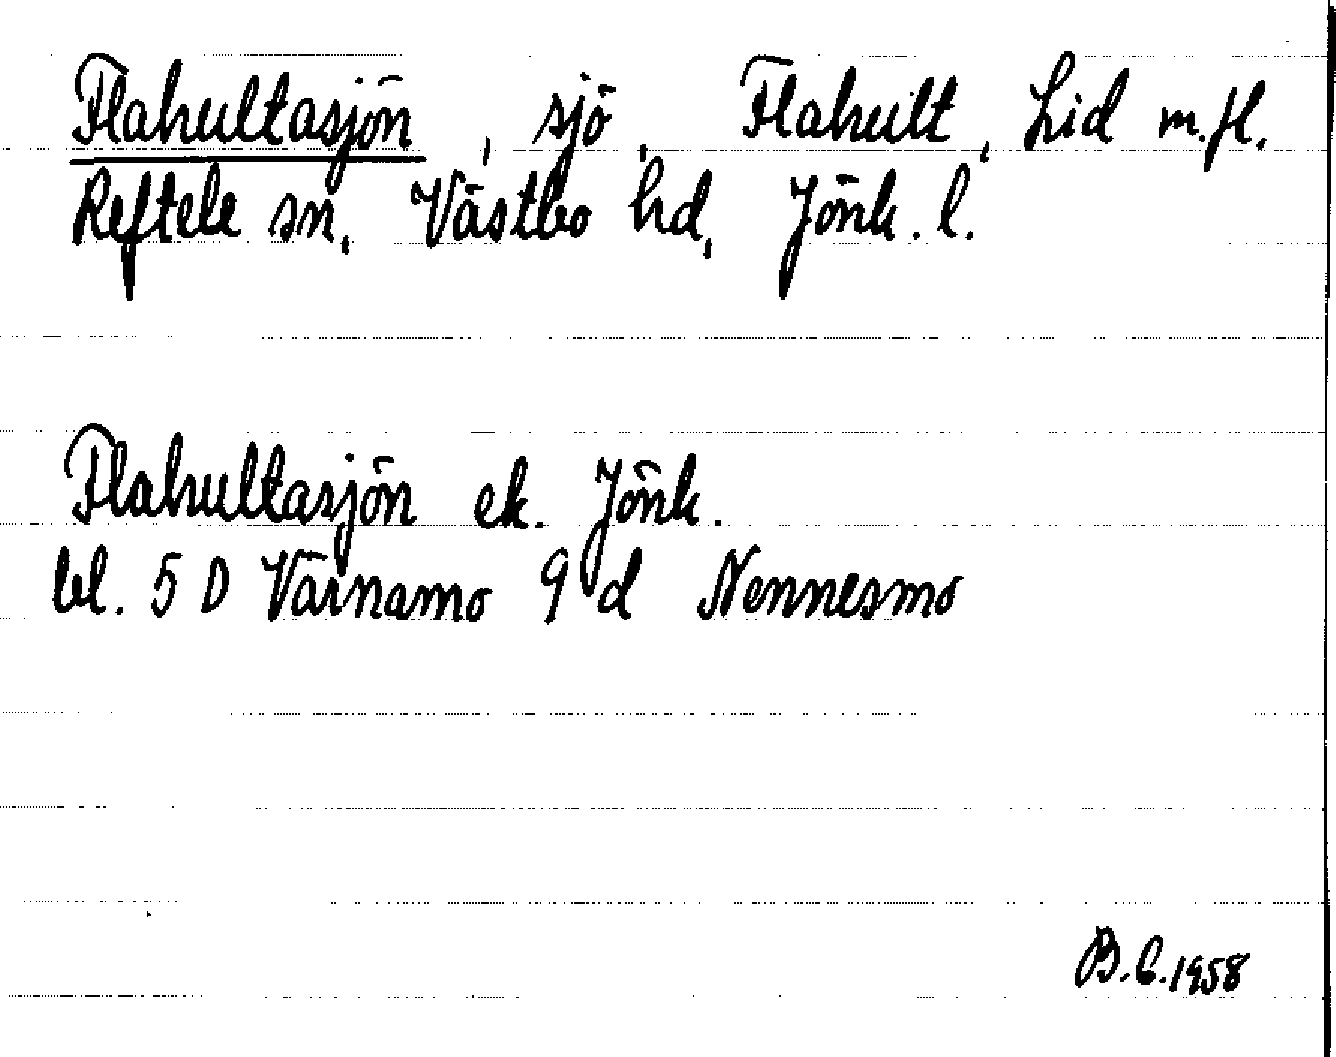 Flahultasjön, sjö, Flahult, Lid m.fl.
Reftele sn, Västbo hd, Jönk. l.
Flahultasjön ek. Jönk.
bl. 5 D Värnamo 9 d Nennesmo
B.C. 1958